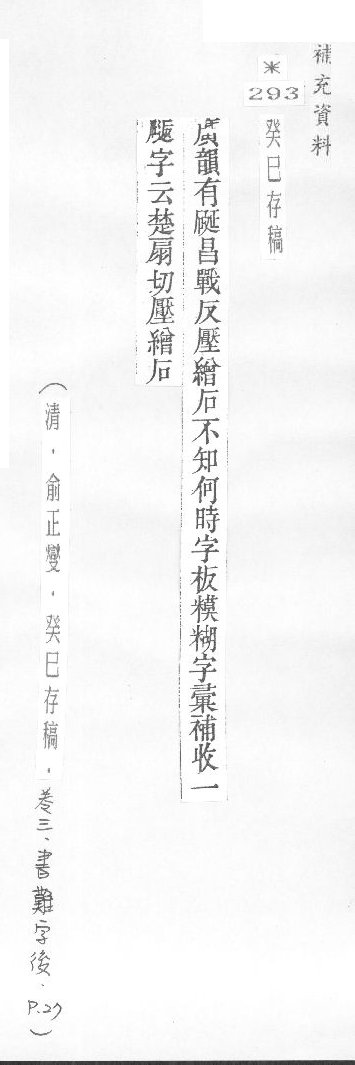 補充資料
※
293
癸巳存稿
廣韻有䂩昌戰反壓繒石不知何時字板模糊字彙補收一
字云楚扇切壓繒石
（清．俞正燮．癸巳存稿．卷三、書難字後．P.27）